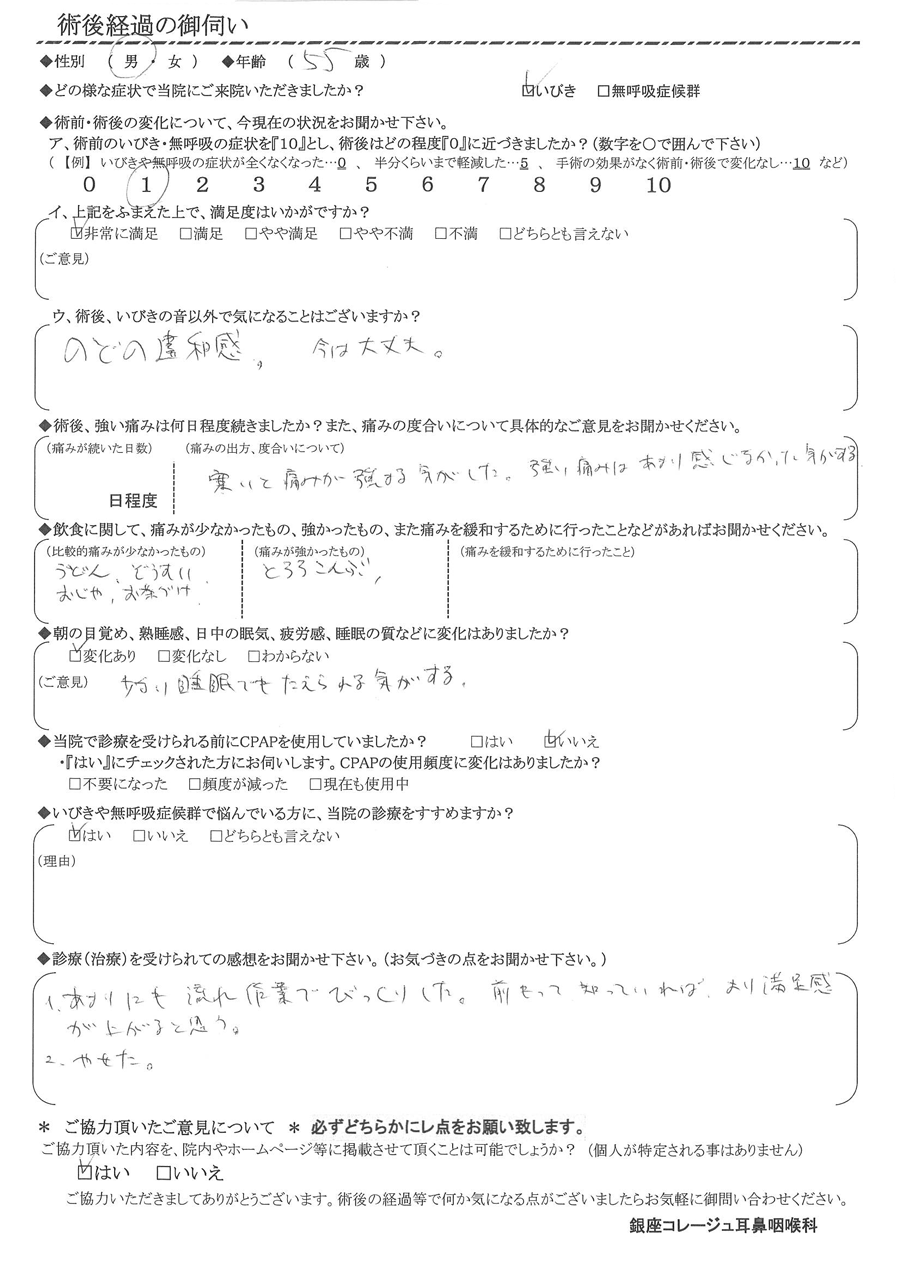 術後経過の御伺い
◆性別 （ 男 ・ 女 ） ◆年齢 （ 55 歳 ）
◆どの様な症状で当院にご来院いただきましたか？ ☑いびき □無呼吸症候群
◆術前・術後の変化について、今現在の状況をお聞かせ下さい。
ア、術前のいびき・無呼吸の症状を『10』とし、術後はどの程度『0』に近づきましたか？（数字を〇で囲んで下さい）
（ 【例】 いびきや無呼吸の症状が全くなくなった…0 、 半分くらいまで軽減した…5 、 手術の効果がなく術前・術後で変化なし…10 など）
0 1 2 3 4 5 6 7 8 9 10
イ、上記をふまえた上で、満足度はいかがですか？
☑非常に満足 □満足 □やや満足 □やや不満 □不満 □どちらとも言えない
（ご意見）
ウ、術後、いびきの音以外で気になることはございますか？
のどの違和感。 今は大丈夫。
◆術後、強い痛みは何日程度続きましたか？また、痛みの度合いについて具体的なご意見をお聞かせください。
（痛みが続いた日数） （痛みの出方、度合いについて）
寒いと痛みが強まる気がした。強い痛みはあまり感じなかった気がする
日程度
◆飲食に関して、痛みが少なかったもの、強かったもの、また痛みを緩和するために行ったことなどがあればお聞かせください。
（比較的痛みが少なかったもの） （痛みが強かったもの） （痛みを緩和するために行ったこと）
うどん、ぞうすい とろろこんぶ、
おじや、お茶づけ
◆朝の目覚め、熟睡感、日中の眠気、疲労感、睡眠の質などに変化はありましたか？
☑変化あり □変化なし □わからない
（ご意見） 短い睡眠でもたえられる気がする。
◆当院で診療を受けられる前にCPAPを使用していましたか？ □はい ☑いいえ
・『はい』にチェックされた方にお伺いします。CPAPの使用頻度に変化はありましたか？
□不要になった □頻度が減った □現在も使用中
◆いびきや無呼吸症候群で悩んでいる方に、当院の診療をすすめますか？
☑はい □いいえ □どちらとも言えない
（理由）
◆診療（治療）を受けられての感想をお聞かせ下さい。（お気づきの点をお聞かせ下さい。）
1、あまりにも流れ作業でびっくりした。前もって知っていれば、より満足感
が上がると思う。
2、やせた。
＊ ご協力頂いたご意見について ＊ 必ずどちらかにレ点をお願い致します。
ご協力頂いた内容を、院内やホームページ等に掲載させて頂くことは可能でしょうか？ （個人が特定される事はありません）
☑はい □いいえ
ご協力いただきましてありがとうございます。術後の経過等で何か気になる点がございましたらお気軽に御問い合わせください。
銀座コレージュ耳鼻咽喉科